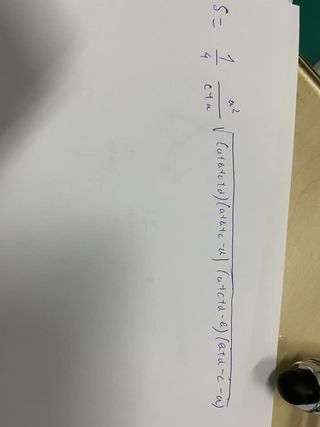 S = 1/4 a²/(c+a) √(a+b+c+d)(a+b+c-d)(a+c+d-b)(b+d-c-a)